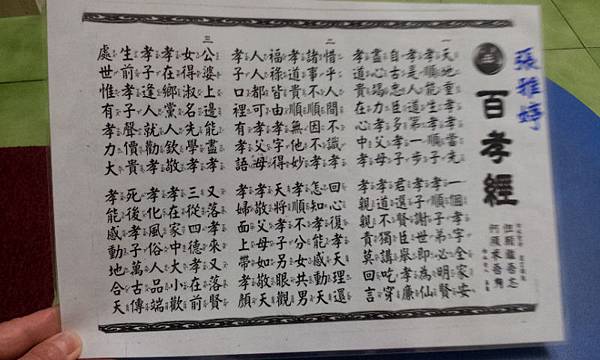 張雅婷
百孝經
一
天地重孝孝當先
一個孝字全家安
孝順能生孝順子
孝順子弟必明賢
孝是人道第一步
孝子謝世即為仙
自古忠臣多孝子
君選賢臣舉孝廉
盡心竭力孝父母
孝道不獨講吃穿
孝道貴在心中孝
孝親親責莫回言
二
惜乎人間不識孝
回心復孝天理還
諸事不順因不孝
怎知孝能感動天
孝道貴順無他妙
孝順不分女共男
福祿皆由孝字得
天將孝子另眼觀
人人都可孝父母
孝敬父母如敬天
孝子口裡有孝語
孝婦面上帶孝顏
三
公婆上邊能盡孝
又落孝來又落賢
女得淑名先學孝
三從四德孝在前
孝在鄉黨人欽敬
孝在家中大小歡
孝子逢人就勸孝
孝化風俗人品端
生前孝子聲價貴
死後孝子萬古傳
處世惟有孝力大
孝能感動地合天